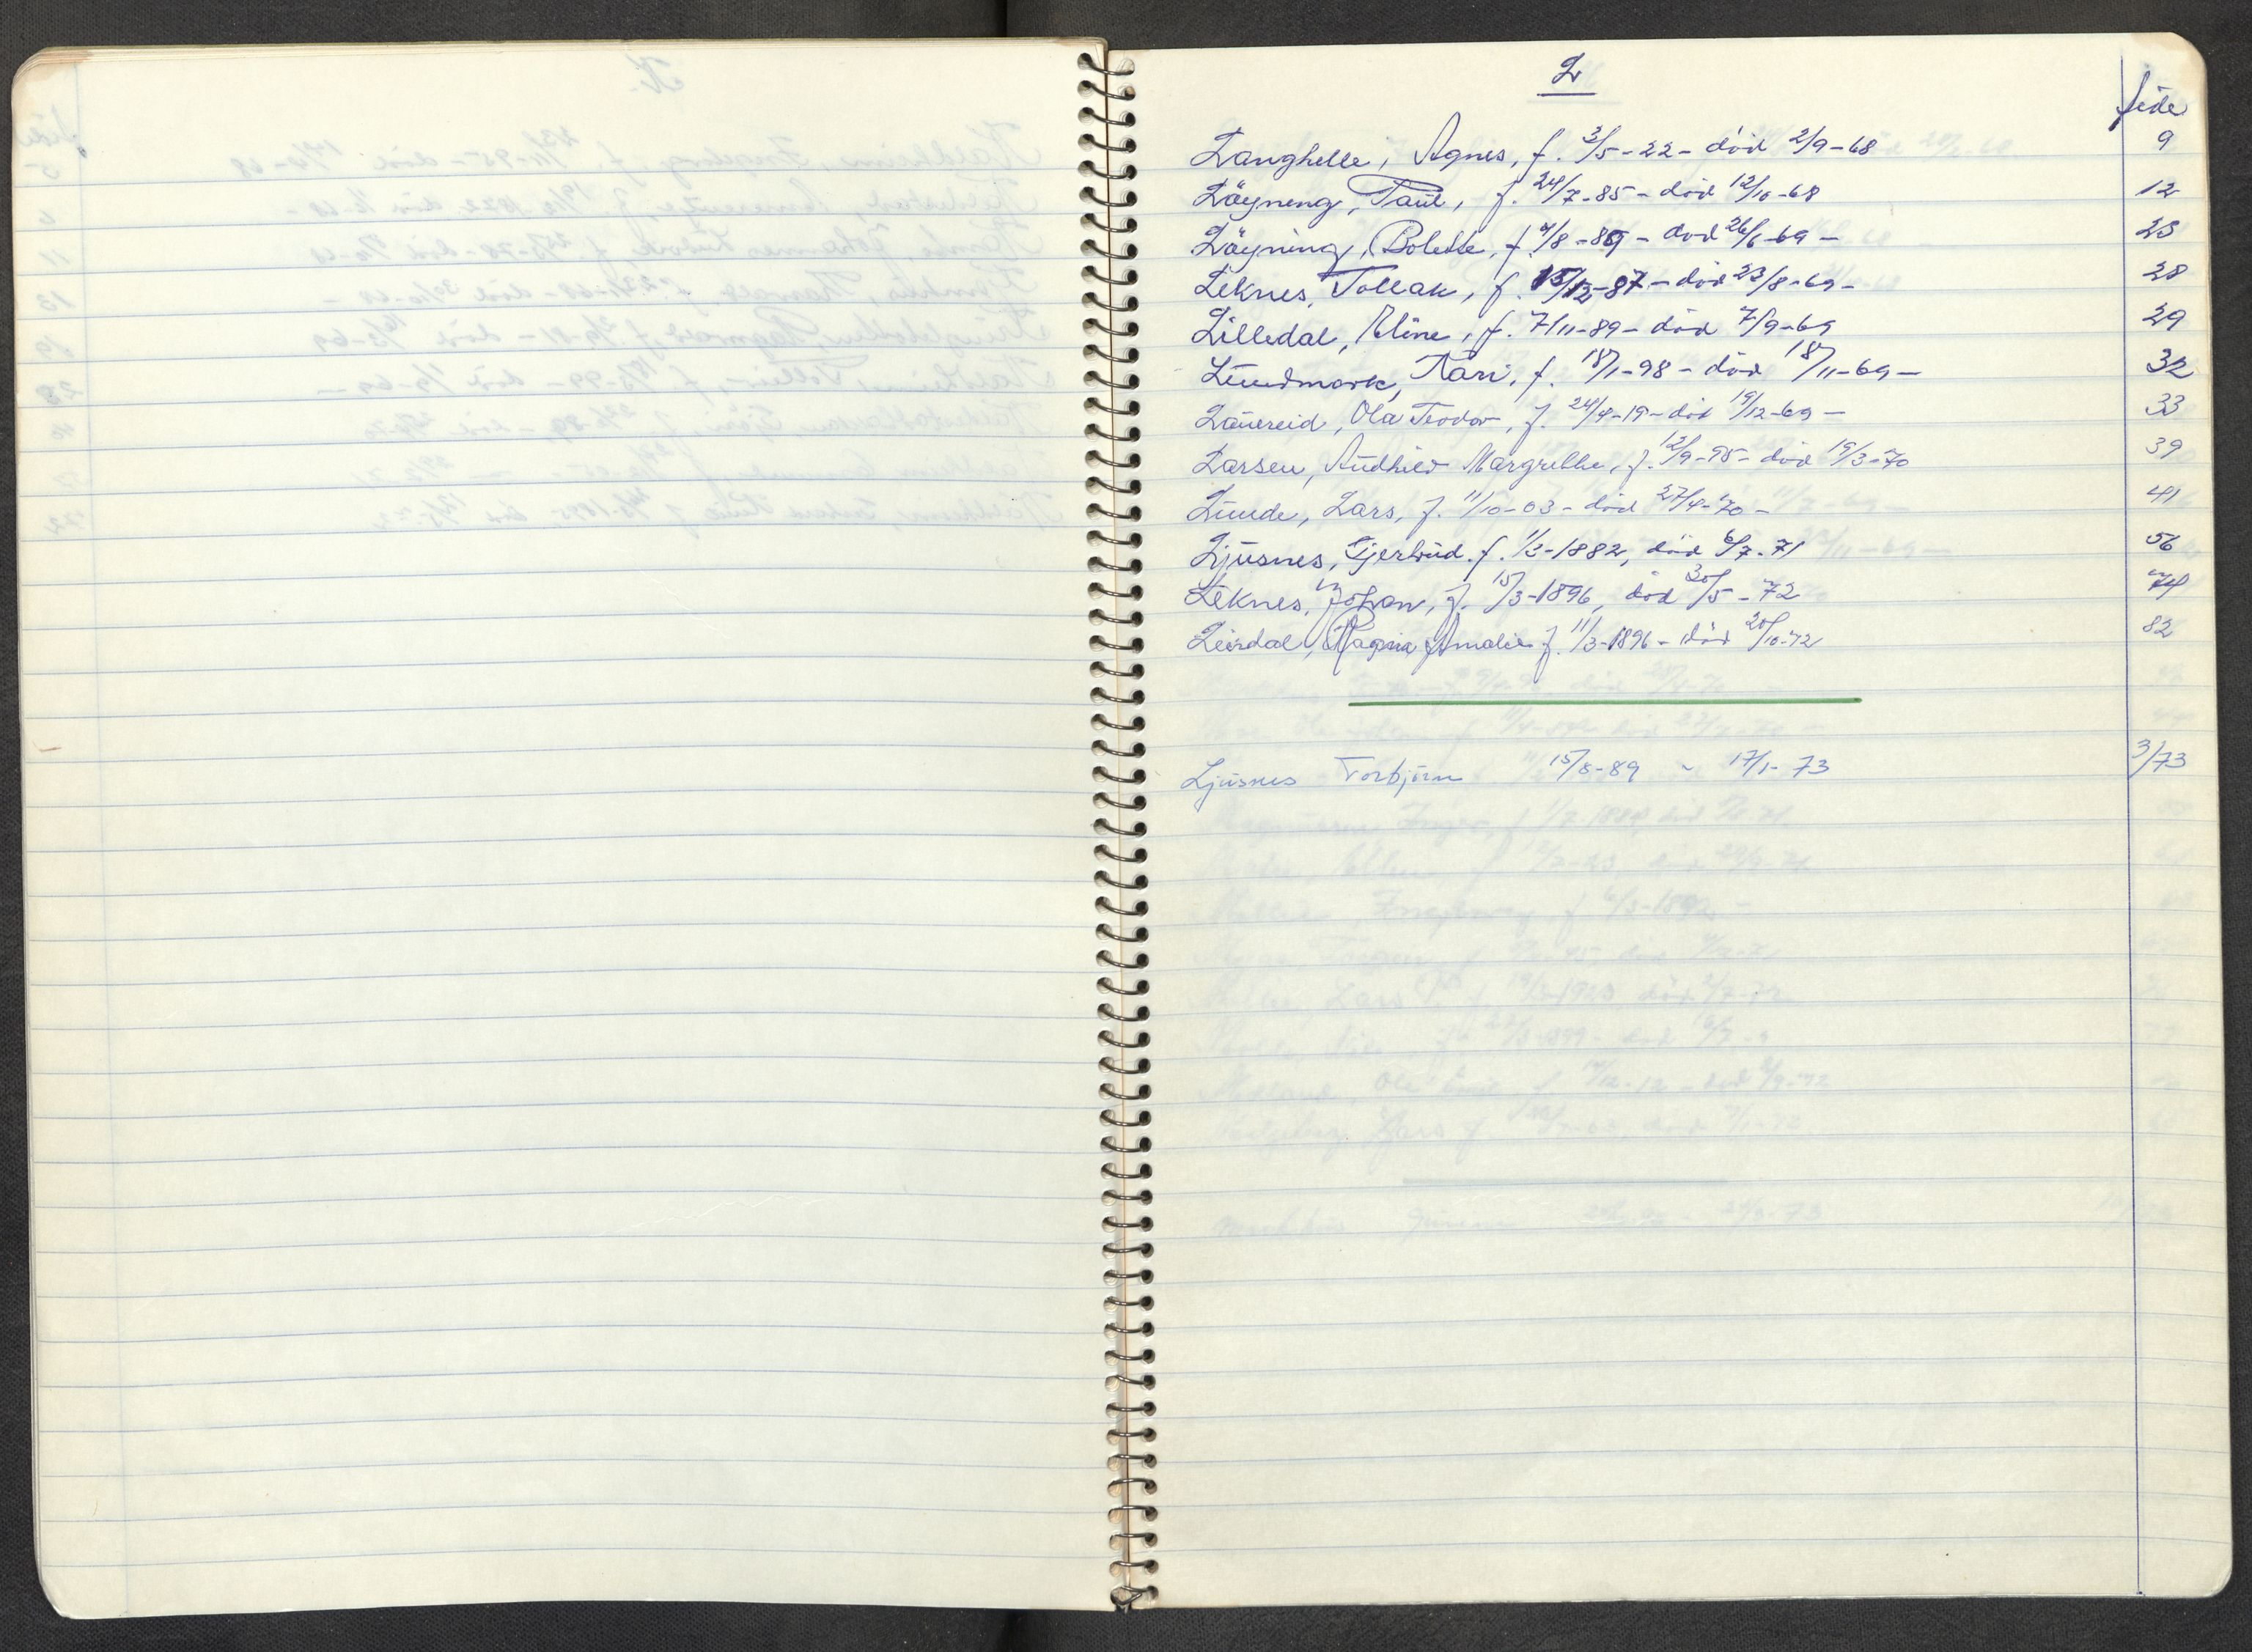 L
Side
Langhelle, Agnes, f. 3/5-22- död 2/9-68 9
Löyning, Paul, f. 24/7-85 - död 12/10-68 12
Löyning, Bolette, f. 4/8-89 - död 26/6-69 - 23
Leknes, Tollak, f. 15/12-87 - död 23/8-69 - 28
Lilledal, Eline, f. 7/11-89 - död 7/9-69 29
Lundmark, Kari, f. 18/1-98 - död 18/11-69 - 32
Lauereid, Ola Teodor, f. 24/4-19 - död 19/12-69 - 33
Larsen, Audhild Margrethe, f. 12/9-95 - död 19/3-70 39
Lunde, Lars, f. 11/10-03 - död 27/4-70 - 41
Ljusnes, Gjertrud. f. 1/3-1882, död 6/7-71 56
Leknes, Johan, f. 15/3-1896, död 30/5-72 74
Leirdal, Ragna Amalie f. 11/3-1896 - död 20/10-72 82
Ljusnes Torbjörn 15/8-89 - 17/1-73 3/73